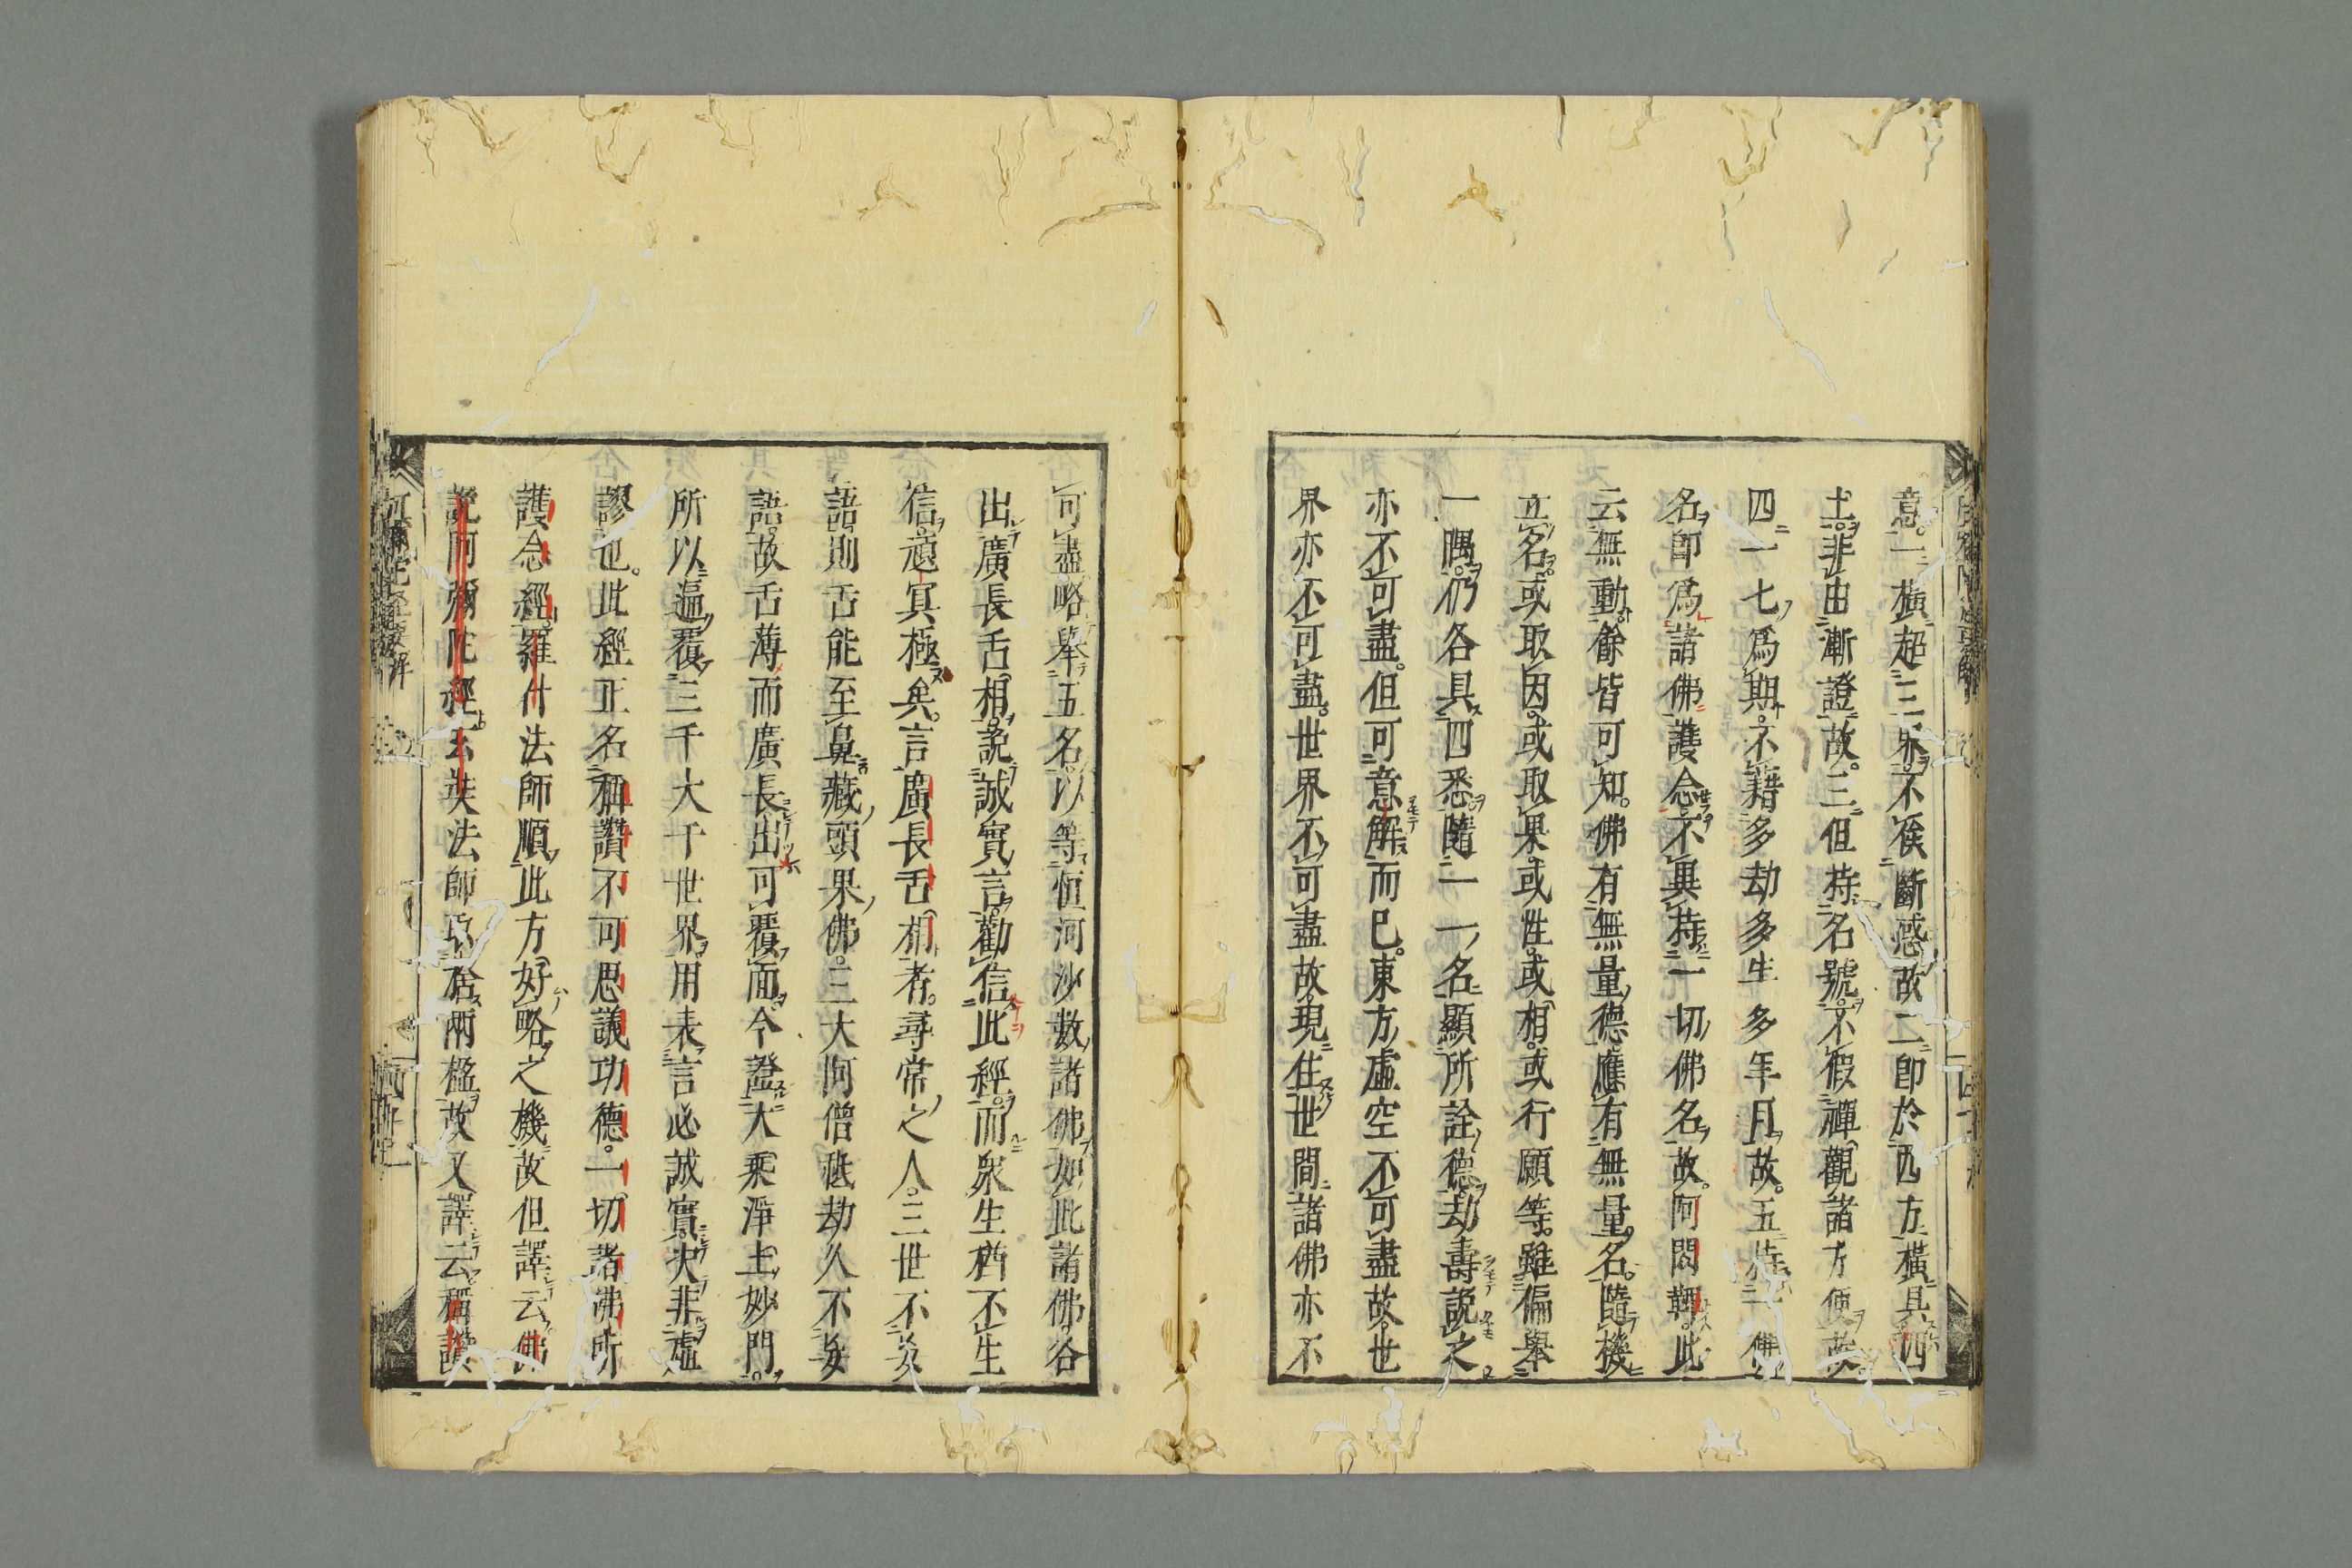 意。一橫超三界。不俟斷惑故二即於西方橫具四
土。非由漸證故。三但持名號。不假禪觀諸方便故。
四一七爲期。不藉多劫多生多年月故。五持一佛
名即爲諸佛護念。不異持一切佛名故。阿閦鞞。此
云無動。餘皆可知。佛有無量德。應有無量名。隨機
立名。或取因。或取果。或性。或相。或行願等。雖偏舉
一隅。仍各具四悉。隨一一名。顯所詮德。劫壽說之
亦不可盡。但可意解而已。東方虛空不可盡故。世
界亦不可盡。世界不可盡故。現住世間諸佛亦不
可盡。略舉五名。以等恒河沙數。諸佛如此諸佛各
出廣長舌相。說誠實言。勸信此經。而衆生猶不生
信。頑冥極矣。言廣長舌相者。尋常之人。三世不妄
語則舌能至鼻。藏頭果佛。三大阿僧祇劫久不妄
語。故舌薄而廣長出可覆面。今證大乘淨土妙門。
所以遍覆三千大千世界。用表言必誠實。決非虛
謬也。此經正名稱讚不可思議功德。一切諸佛所
護念經。羅什法師順此方好略之機。故但譯云佛
說阿彌陀經。玄奘法師取捨兩楹。故又譯云稱讚